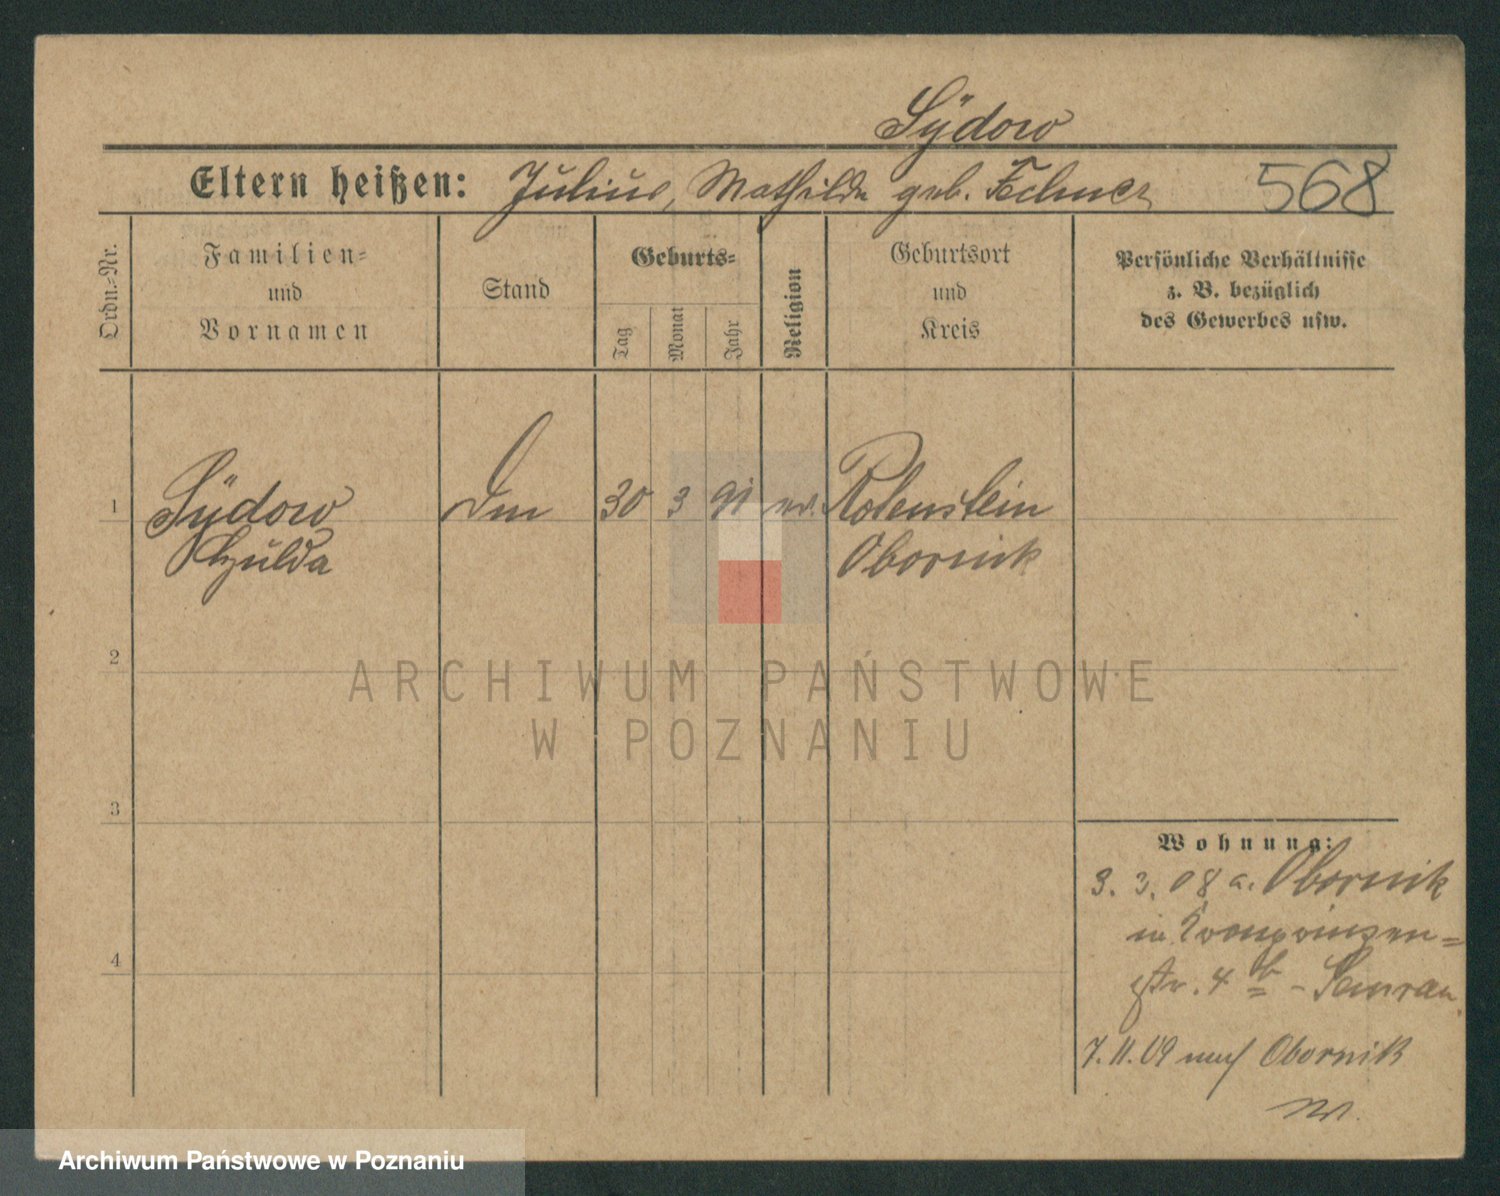 Sÿdow
Eltern heißen: Julius, Mathilde geb. Fechner 568
Ordn.-Nr.
Familien-
und
Vornamen
Stand
Geburts-
Tag
Monat
Jahr
Religion
Geburtsort
und
Kreis
Persönliche Verhältnisse
z. B. bezüglich
des Gewerbes usw.
1 Sÿdow 30 3 91 ev. Rotenstein
Hulda Obornik
2
ARCHIWUM PAŃSTWOWE
W POZNANIU
3
Wohnung:
3. 3. 08 a. Obornik
in Kronprinzen=
str. 4 b -
4
7. 11. 09 nach Obornik
Archiwum Państwowe w Poznaniu